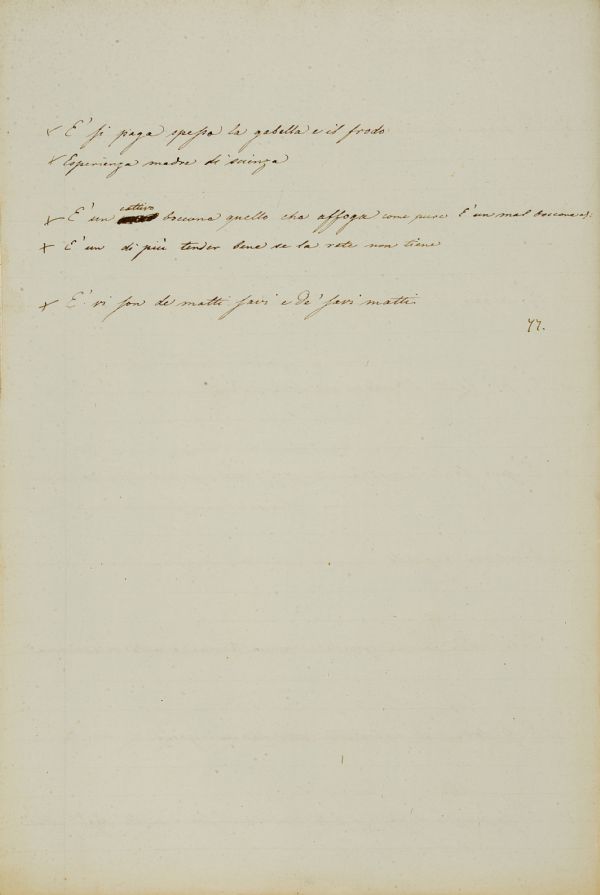 × E' si paga spesso la gabella e il frodo
× Esperienza madre di scienza
× E' un cattivo boccone quello che affoga come pure E' un mal boccone &:
× E' un di più tender bene se la rete non tiene
× E' vi son de matti savi e de' savi matti.
77.